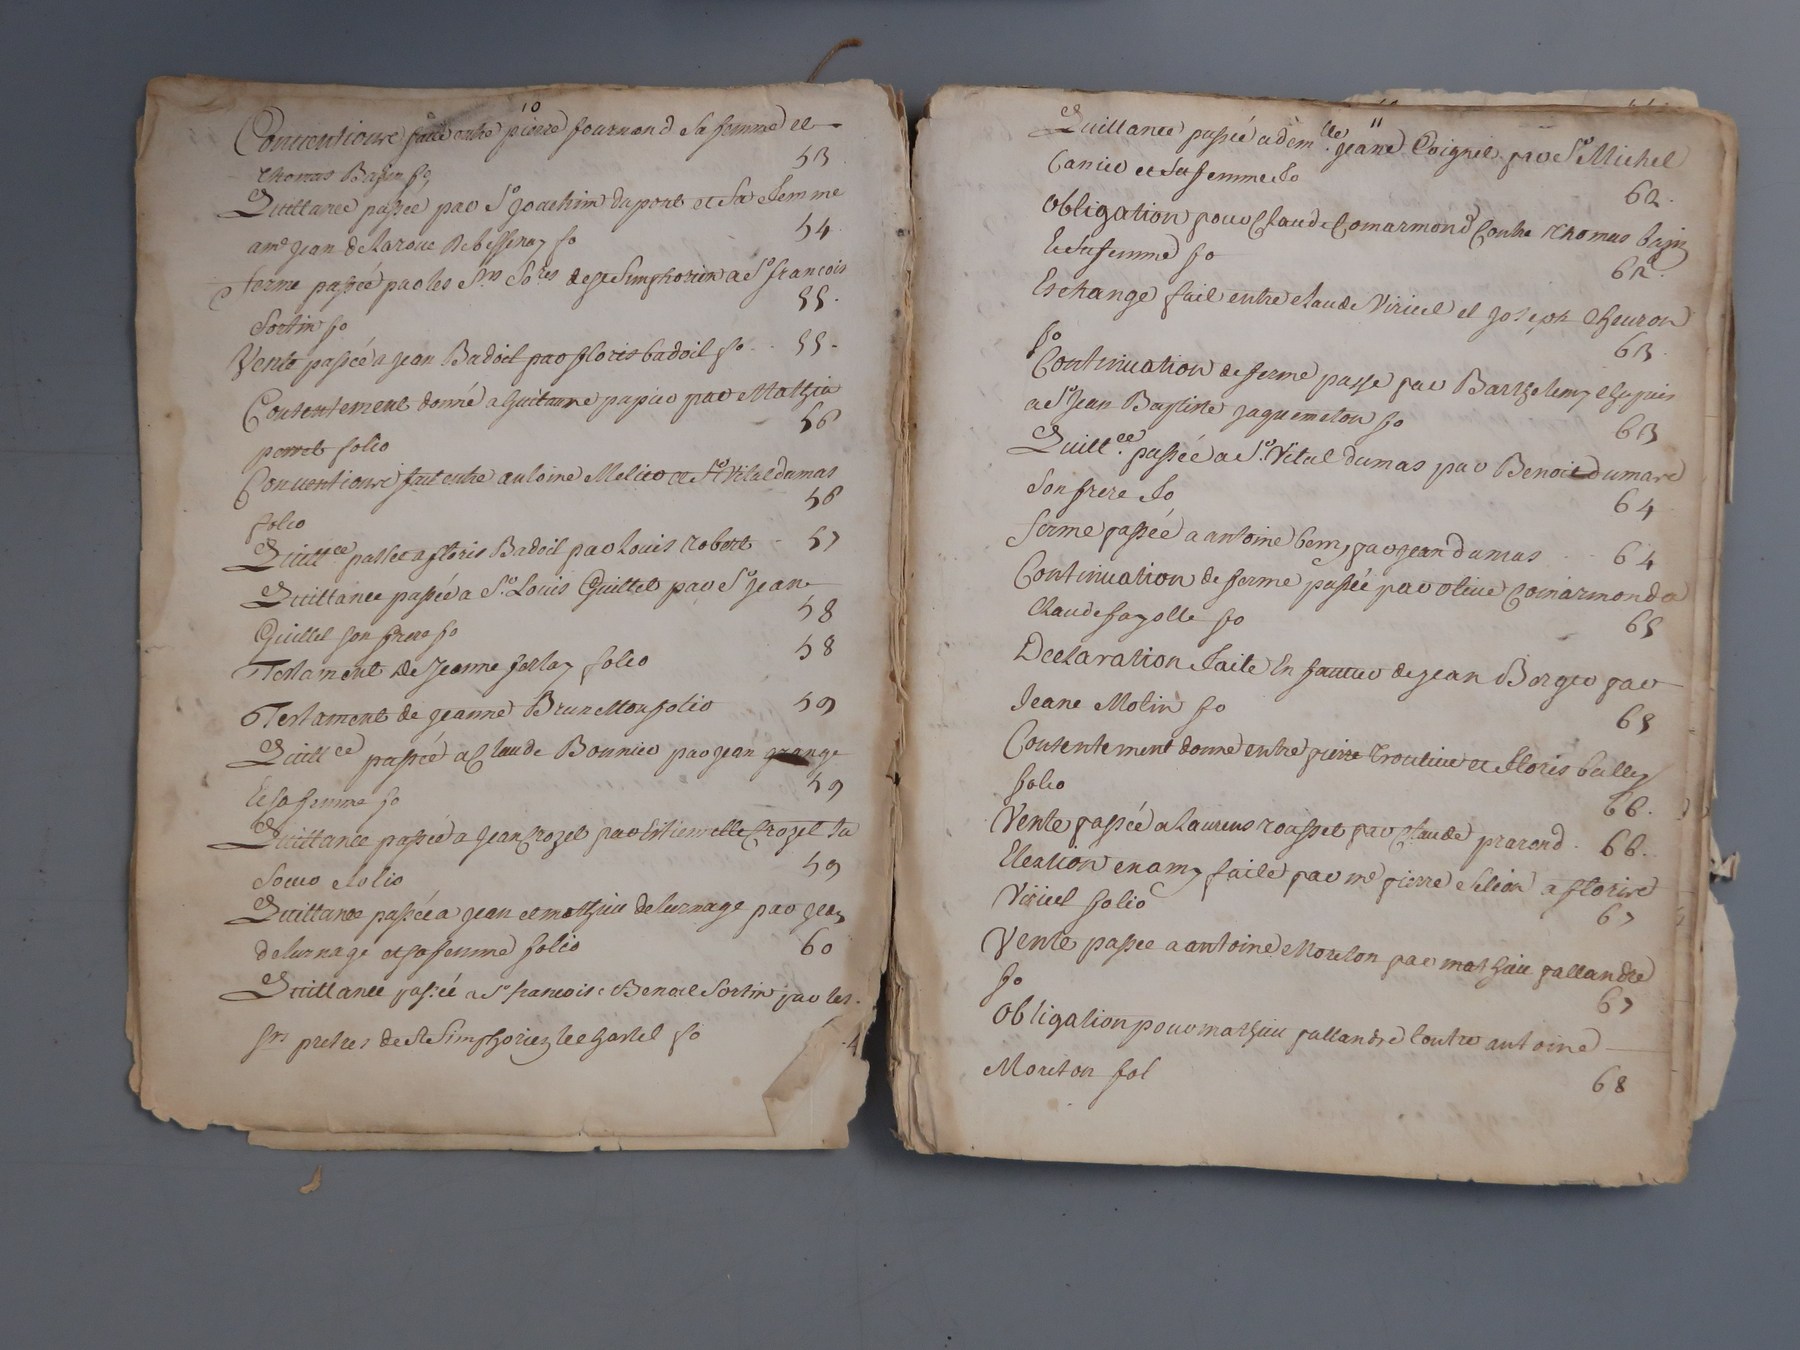 10
Conventions faite entre pierre fournond e sa femme et
thomas Bajin fo 53.
Quittance passée par Sr Joachim duport et Sa femme
a me jean de laroue de bessenay fo 54
ferme passée par les Srs So.res de St Simphorien a Sr francois
Sortin fo 55.
Vente passée a jean Badoil par floris badoil fo 55.
Contentement donné a Guitaume papier par Mathia
perret folio 56
Conventions fait entre antoine Melier et Sr Vital dumas
folio 56
Quittce passée a floris Badoil par Louis robert 57
Quittance passée a Sr Louis Guillet par Sr jean
Guillet son frere fo 58
Testament de jeanne folio 58
Testament de jeanne Brunetton folio 59
Quittce passée a Claude Bonnier par jean grange
E sa femme fo 59
Quittance passée a jean Crozet par Crozet sa
Soeur folio 59
Quittance passée a jean et mathieu delurnage par jean
delurnage et sa femme folio 60
Quittance passée a Sr francois Benoit Sortin par les
srs pretres de St Simphorien le Chastel fo
11
Quittance passée a demlle jeane Coignet par Sr Michel
Canier et sa femme fo 62.
Obligation pour Claude Comarmond Contre thomas bajin
E sa femme fo 62.
Eschange fait entre claude Viricel et joseph Cheuron
fo 63.
Continuation de ferme passe par Barthelemy Chapuis
a Sr Jean Baptiste jaquemeton fo 63
Quittce passée a Sr Vital dumas par Benoit dumas
son frere fo 64
ferme passée a antoine par jean dumas 64
Continuation de ferme passée par olive Comarmond a
Claude fayolle fo 65
Declaration faite En faveur de jean Borgeo par
Jeane Molin fo 65
Contentement donne entre pierre et floris bally
folio 66.
Vente passée a Laurens rousset par Claude prarond 66.
Election en amy faite par me pierre a floris
Viricel folio 67
Vente passee a antoine Moreton par mathieu pallandre
fo 67
Obligation pour mathieu pallandre Contre antoine
Moreton fol 68